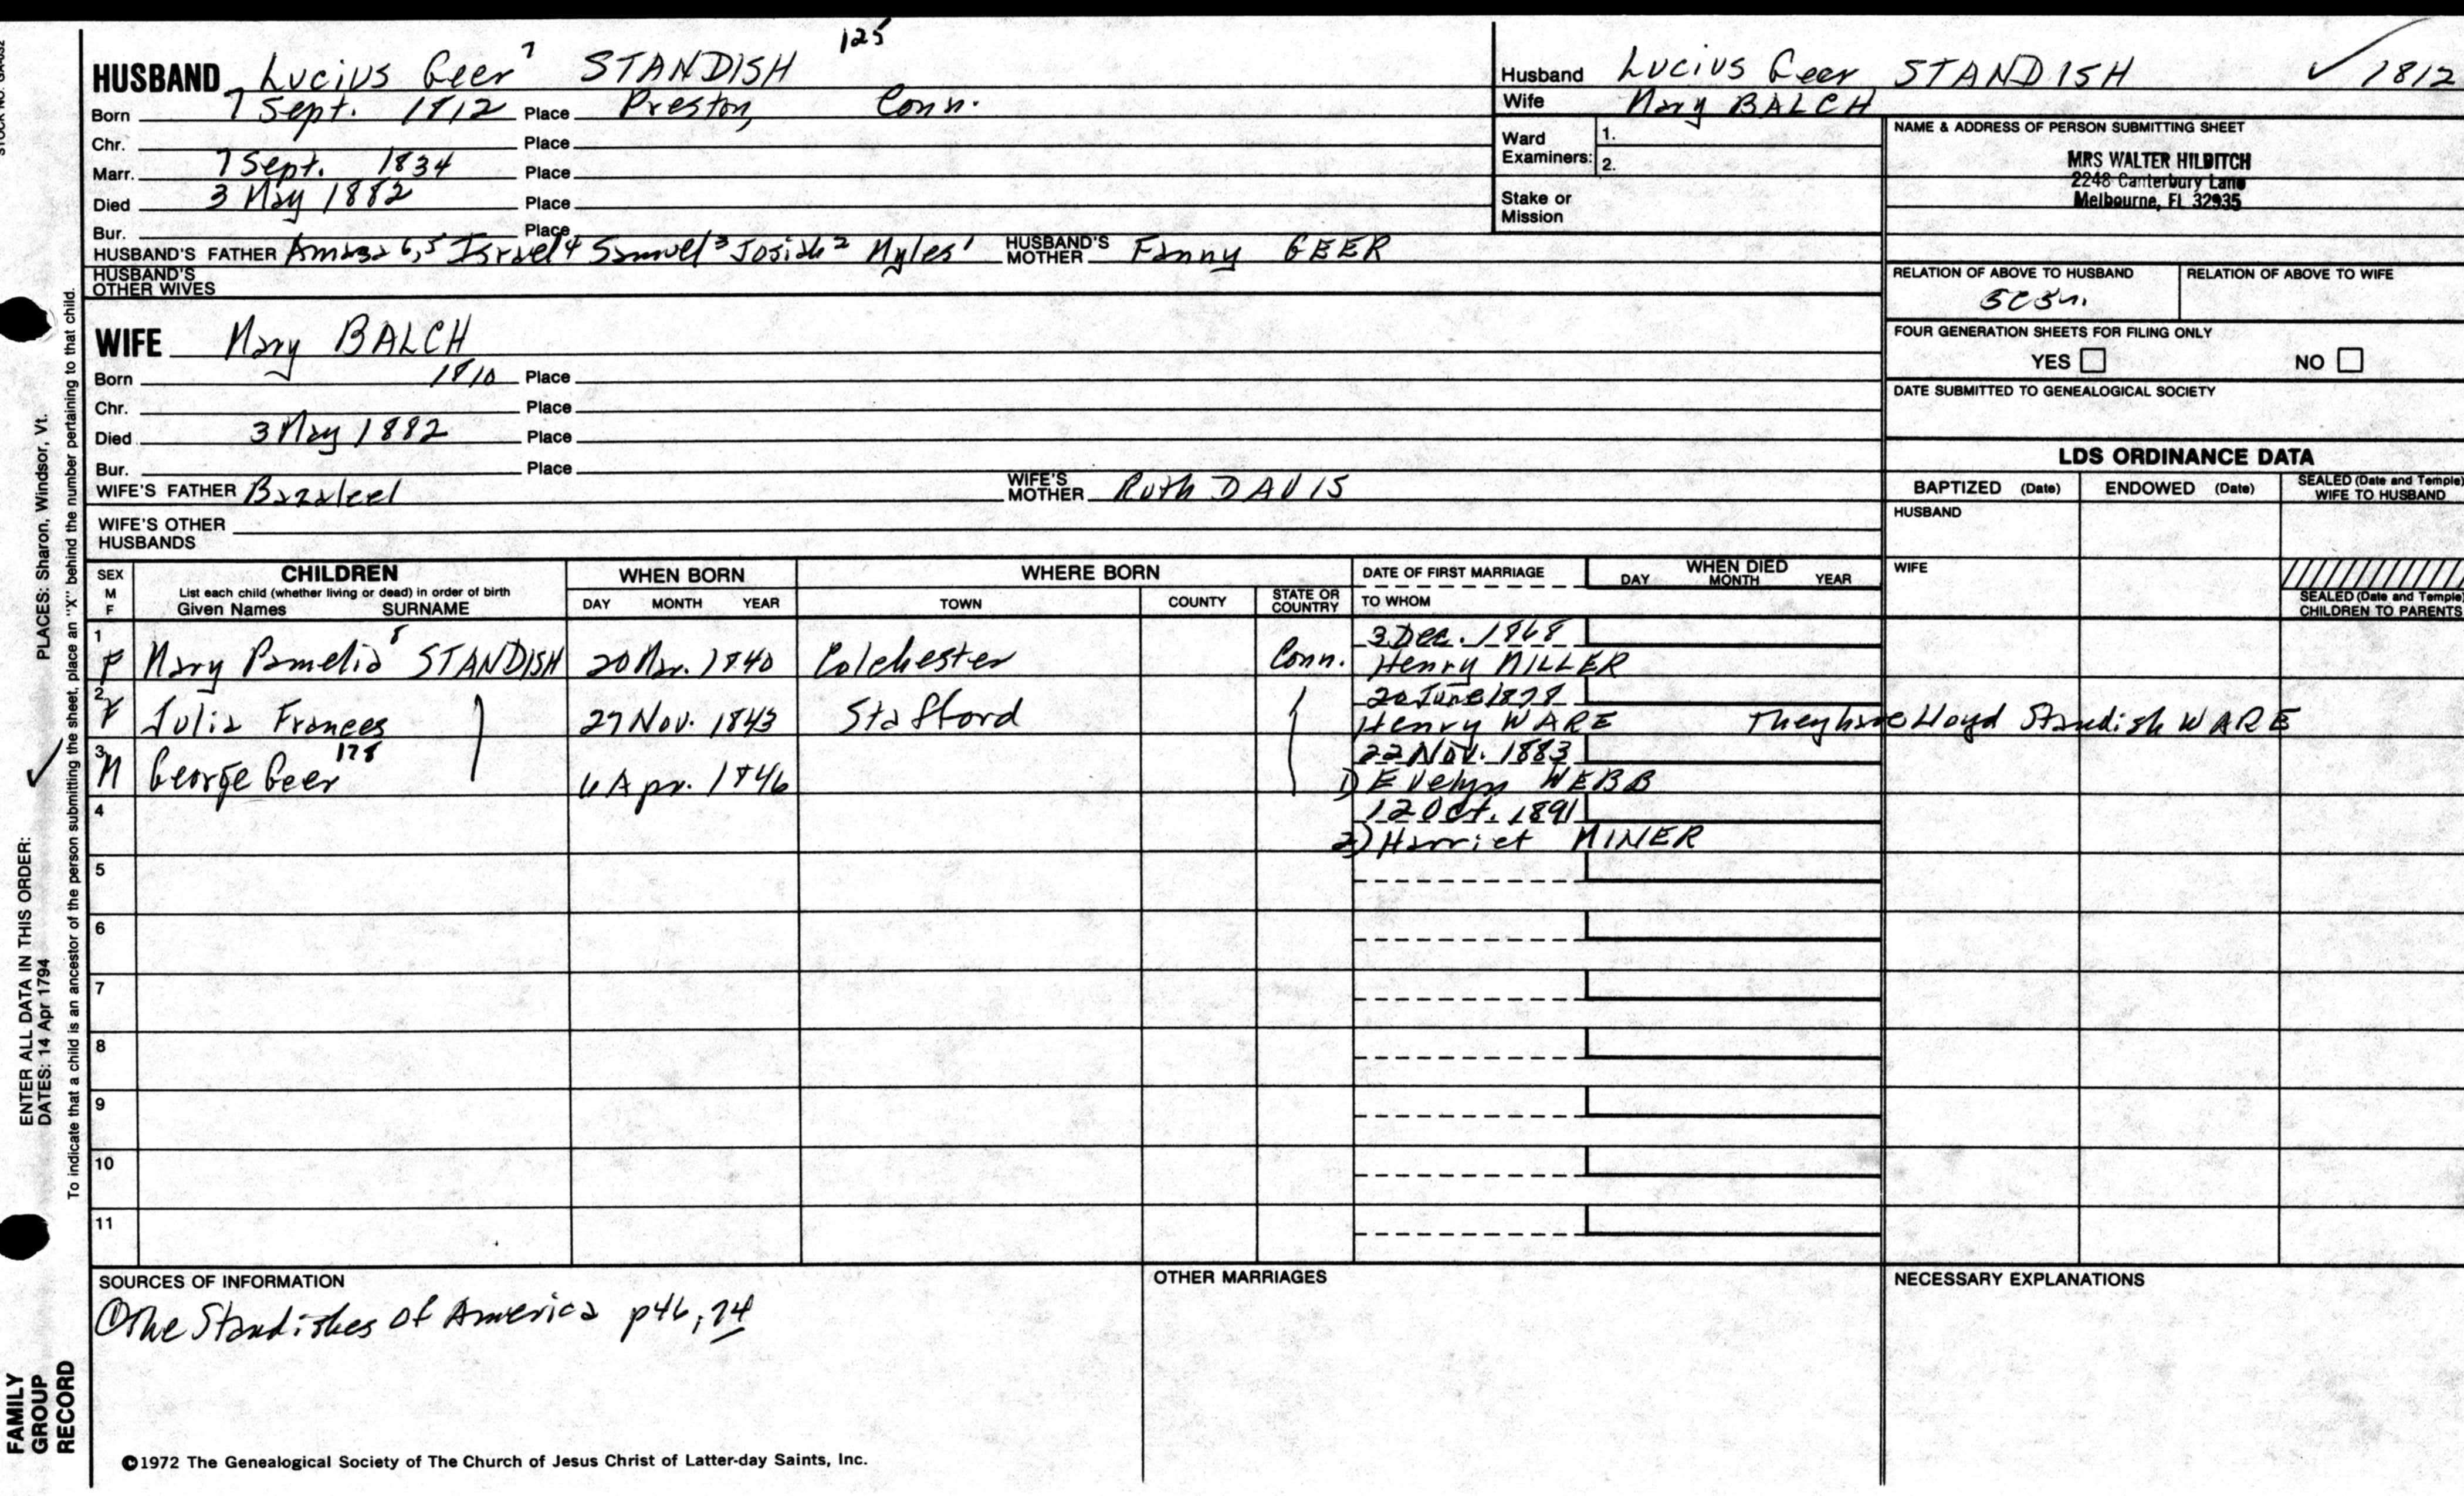 STOCK NO. GA032
HUSBAND Lucius Geer 7 STANDISH 125
Born 7 Sept. 1812 Place Preston, Conn.
Chr. Place
Marr. 7 Sept. 1834 Place
Died 3 May 1882 Place
Bur. Place
HUSBAND'S FATHER Amasa 6,5 Israel 4 Samuel 3 Josiah 2 Myles 1 HUSBAND'S MOTHER Fanny GEER
HUSBAND'S OTHER WIVES
WIFE Mary BALCH
Born 1810 Place
Chr. Place
Died 3 May 1882 Place
Bur. Place
WIFE'S FATHER Bazaleel WIFE'S MOTHER Ruth DAVIS
WIFE'S OTHER HUSBANDS
Husband Lucius Geer STANDISH ✓ 1812
Wife Mary BALCH
Ward Examiners: 1.
2.
Stake or Mission
NAME & ADDRESS OF PERSON SUBMITTING SHEET
MRS WALTER HILDITCH
2248 Canterbury Lane
Melbourne, FL 32935
RELATION OF ABOVE TO HUSBAND RELATION OF ABOVE TO WIFE
5C3r.
FOUR GENERATION SHEETS FOR FILING ONLY
YES NO
DATE SUBMITTED TO GENEALOGICAL SOCIETY
LDS ORDINANCE DATA
BAPTIZED (Date) ENDOWED (Date) SEALED (Date and Temple) WIFE TO HUSBAND
HUSBAND
WIFE
SEALED (Date and Temple) CHILDREN TO PARENTS
SEX M F CHILDREN WHEN BORN WHERE BORN DATE OF FIRST MARRIAGE WHEN DIED
List each child (whether living or dead) in order of birth
Given Names SURNAME DAY MONTH YEAR TOWN COUNTY STATE OR COUNTRY TO WHOM DAY MONTH YEAR
3 Dec. 1868
1 F Mary Pamelia 8 STANDISH 20 Mar. 1840 Colchester Conn. Henry MILLER
20 June 1878
2 F Julia Frances 27 Nov. 1843 Stafford Henry WARE They have Lloyd Standish WARE
22 Nov. 1883
✓ 3 M George Geer 178 6 Apr. 1846 1) Evelyn WEBB
4 12 Oct. 1891
2) Harriet MINER
5
6
7
8
9
10
11
SOURCES OF INFORMATION OTHER MARRIAGES NECESSARY EXPLANATIONS
① The Standishes of America p46, 74
©1972 The Genealogical Society of The Church of Jesus Christ of Latter-day Saints, Inc.
ENTER ALL DATA IN THIS ORDER: PLACES: Sharon, Windsor, Vt.
DATES: 14 Apr 1794
To indicate that a child is an ancestor of the person submitting the sheet, place an "X" behind the number pertaining to that child.
FAMILY
GROUP
RECORD